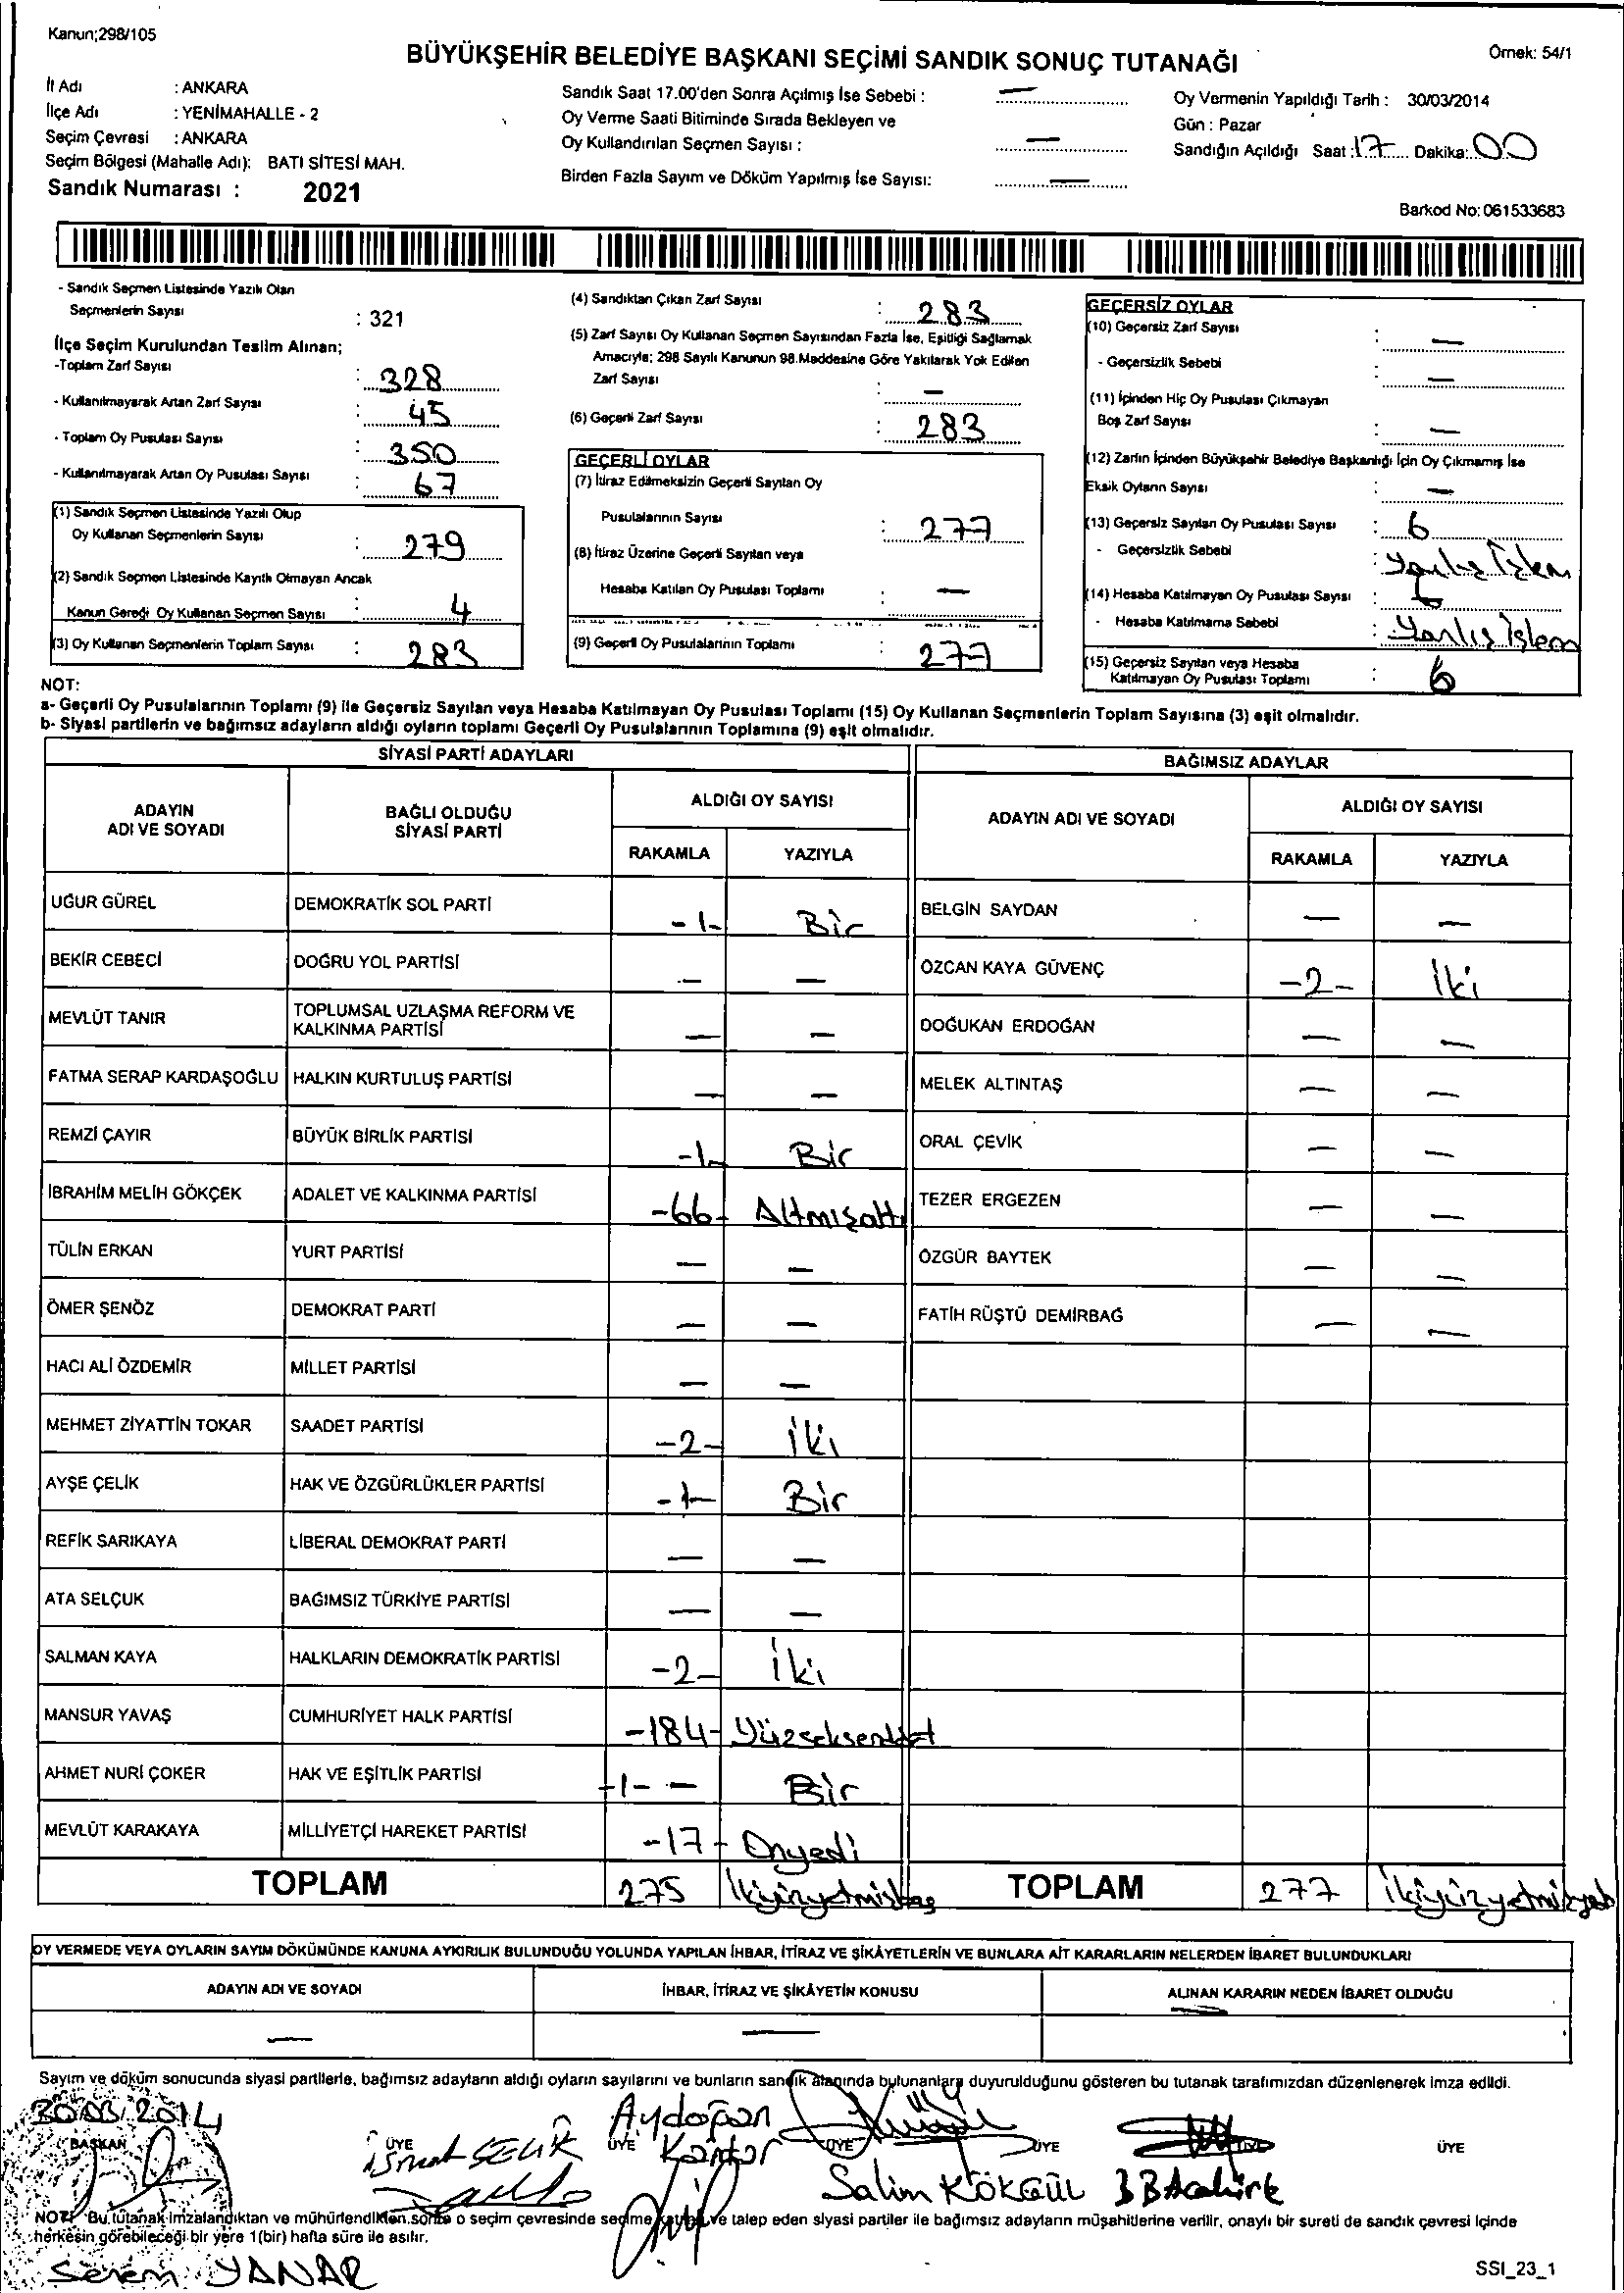 Kanun;298/105
BÜYÜKŞEHİR BELEDİYE BAŞKANI SEÇİMİ SANDIK SONUÇ TUTANAĞI
Örnek: 54/1
İl Adı : ANKARA
İlçe Adı : YENİMAHALLE - 2
Seçim Çevresi : ANKARA
Seçim Bölgesi (Mahalle Adı): BATI SİTESİ MAH.
Sandık Numarası : 2021
Sandık Saat 17.00'den Sonra Açılmış İse Sebebi : —
Oy Verme Saati Bitiminde Sırada Bekleyen ve
Oy Kullandırılan Seçmen Sayısı : —
Birden Fazla Sayım ve Döküm Yapılmış İse Sayısı: —
Oy Vermenin Yapıldığı Tarih : 30/03/2014
Gün : Pazar
Sandığın Açıldığı Saat : 17 Dakika: 00
Barkod No: 061533683
- Sandık Seçmen Listesinde Yazılı Olan
Seçmenlerin Sayısı : 321
İlçe Seçim Kurulundan Teslim Alınan;
-Toplam Zarf Sayısı : 328
- Kullanılmayarak Artan Zarf Sayısı : 45
- Toplam Oy Pusulası Sayısı : 350
- Kullanılmayarak Artan Oy Pusulası Sayısı : 67
(1) Sandık Seçmen Listesinde Yazılı Olup
Oy Kullanan Seçmenlerin Sayısı : 279
(2) Sandık Seçmen Listesinde Kayıtlı Olmayan Ancak
Kanun Gereği Oy Kullanan Seçmen Sayısı : 4
(3) Oy Kullanan Seçmenlerin Toplam Sayısı : 283
(4) Sandıktan Çıkan Zarf Sayısı : 283
(5) Zarf Sayısı Oy Kullanan Seçmen Sayısından Fazla İse, Eşitliği Sağlamak
Amacıyla; 298 Sayılı Kanunun 98.Maddesine Göre Yakılarak Yok Edilen
Zarf Sayısı : —
(6) Geçerli Zarf Sayısı : 283
GEÇERLİ OYLAR
(7) İtiraz Edilmeksizin Geçerli Sayılan Oy
Pusulalarının Sayısı : 277
(8) İtiraz Üzerine Geçerli Sayılan veya
Hesaba Katılan Oy Pusulası Toplamı : —
(9) Geçerli Oy Pusulalarının Toplamı : 277
GEÇERSİZ OYLAR
(10) Geçersiz Zarf Sayısı : —
- Geçersizlik Sebebi : —
(11) İçinden Hiç Oy Pusulası Çıkmayan
Boş Zarf Sayısı : —
(12) Zarfın İçinden Büyükşehir Belediye Başkanlığı İçin Oy Çıkmamış İse
Eksik Oyların Sayısı : —
(13) Geçersiz Sayılan Oy Pusulası Sayısı : 6
- Geçersizlik Sebebi : Yanlış İşlem
(14) Hesaba Katılmayan Oy Pusulası Sayısı : 6
- Hesaba Katılmama Sebebi : Yanlış İşlem
(15) Geçersiz Sayılan veya Hesaba
Katılmayan Oy Pusulası Toplamı : 6
NOT:
a- Geçerli Oy Pusulalarının Toplamı (9) ile Geçersiz Sayılan veya Hesaba Katılmayan Oy Pusulası Toplamı (15) Oy Kullanan Seçmenlerin Toplam Sayısına (3) eşit olmalıdır.
b- Siyasi partilerin ve bağımsız adayların aldığı oyların toplamı Geçerli Oy Pusulalarının Toplamına (9) eşit olmalıdır.
SİYASİ PARTİ ADAYLARI
ADAYIN ADI VE SOYADI BAĞLI OLDUĞU SİYASİ PARTİ ALDIĞI OY SAYISI
RAKAMLA YAZIYLA
UĞUR GÜREL DEMOKRATİK SOL PARTİ -1- Bir
BEKİR CEBECİ DOĞRU YOL PARTİSİ — —
MEVLÜT TANIR TOPLUMSAL UZLAŞMA REFORM VE KALKINMA PARTİSİ — —
FATMA SERAP KARDAŞOĞLU HALKIN KURTULUŞ PARTİSİ — —
REMZİ ÇAYIR BÜYÜK BİRLİK PARTİSİ -1- Bir
İBRAHİM MELİH GÖKÇEK ADALET VE KALKINMA PARTİSİ -66- Altmışaltı
TÜLİN ERKAN YURT PARTİSİ — —
ÖMER ŞENÖZ DEMOKRAT PARTİ — —
HACI ALİ ÖZDEMİR MİLLET PARTİSİ — —
MEHMET ZİYATTİN TOKAR SAADET PARTİSİ -2- İki
AYŞE ÇELİK HAK VE ÖZGÜRLÜKLER PARTİSİ -1- Bir
REFİK SARIKAYA LİBERAL DEMOKRAT PARTİ — —
ATA SELÇUK BAĞIMSIZ TÜRKİYE PARTİSİ — —
SALMAN KAYA HALKLARIN DEMOKRATİK PARTİSİ -2- İki
MANSUR YAVAŞ CUMHURİYET HALK PARTİSİ -184- Yüzseksendört
AHMET NURİ ÇOKER HAK VE EŞİTLİK PARTİSİ -1- — Bir
MEVLÜT KARAKAYA MİLLİYETÇİ HAREKET PARTİSİ -17- Onyedi
TOPLAM 275 İkiyüzyetmişbeş
BAĞIMSIZ ADAYLAR
ADAYIN ADI VE SOYADI ALDIĞI OY SAYISI
RAKAMLA YAZIYLA
BELGİN SAYDAN — —
ÖZCAN KAYA GÜVENÇ -2- İki
DOĞUKAN ERDOĞAN — —
MELEK ALTINTAŞ — —
ORAL ÇEVİK — —
TEZER ERGEZEN — —
ÖZGÜR BAYTEK — —
FATİH RÜŞTÜ DEMİRBAĞ — —
TOPLAM 277 İkiyüzyetmişyedi
OY VERMEDE VEYA OYLARIN SAYIM DÖKÜMÜNDE KANUNA AYKIRILIK BULUNDUĞU YOLUNDA YAPILAN İHBAR, İTİRAZ VE ŞİKÂYETLERİN VE BUNLARA AİT KARARLARIN NELERDEN İBARET BULUNDUKLARI
ADAYIN ADI VE SOYADI İHBAR, İTİRAZ VE ŞİKÂYETİN KONUSU ALINAN KARARIN NEDEN İBARET OLDUĞU
— — —
Sayım ve döküm sonucunda siyasi partilerle, bağımsız adayların aldığı oyların sayılarını ve bunların sandık alanında bulunanlara duyurulduğunu gösteren bu tutanak tarafımızdan düzenlenerek imza edildi.
30.03.2014
BAŞKAN ÜYE ÜYE ÜYE ÜYE ÜYE ÜYE
İsmet ÇELİK
Aydoğan Kantar
Salim KÖKGÜL
NOT: Bu tutanak imzalandıktan ve mühürlendikten sonra o seçim çevresinde seçime katılan ve talep eden siyasi partiler ile bağımsız adayların müşahitlerine verilir, onaylı bir sureti de sandık çevresi içinde
herkesin görebileceği bir yere 1(bir) hafta süre ile asılır.
YANAR
SSI_23_1